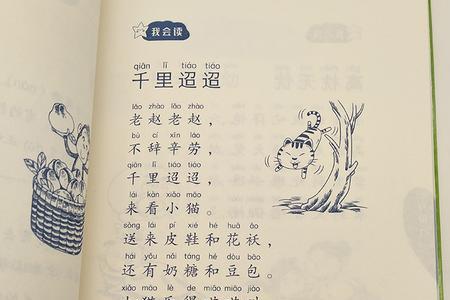 我会读
qiān lǐ tiáo tiáo
千里迢迢
lǎo zhào lǎo zhào
老赵老赵，
bù cí xīn láo
不辞辛劳，
qiān lǐ tiáo tiáo
千里迢迢，
lái kàn xiǎo māo
来看小猫。
sòng lái pí xié hé huā ǎo
送来皮鞋和花袄，
hái yǒu nǎi táng hé dòu bāo
还有奶糖和豆包。
xiǎo māo lè de miāo miāo jiào